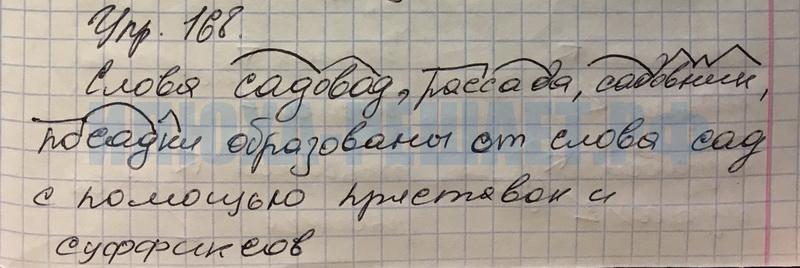 Упр. 168.
Слова садовод, рассада, садовник,
посадки образованы от слова сад
с помощью приставок и
суффиксов